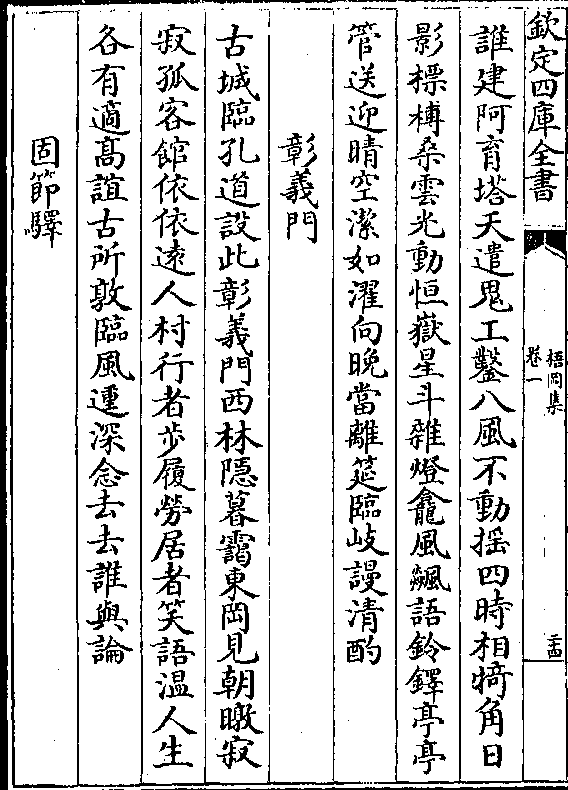 欽定四庫全書
梧岡集
卷一
二十四
誰建阿育塔天遣鬼工鑿八風不動揺四時相犄角日
影標榑桑雲光動恒嶽星斗雜燈龕風飆語鈴鐸亭亭
管送迎晴空潔如濯向晚當離筵臨岐謾清酌
彰義門
古城臨孔道設此彰義門西林隠暮靄東岡見朝暾寂
寂孤客館依依逺人村行者步履勞居者笑語温人生
各有適髙誼古所敦臨風運深念去去誰與論
固節驛